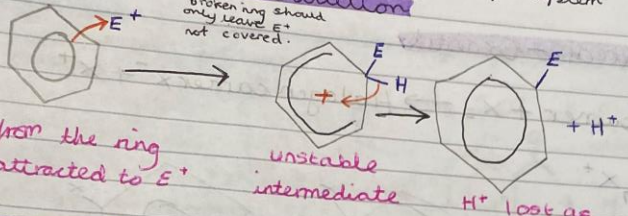 broken ring should
only leave E+
not covered.
E+
E
H
+
E
+ H+
from the ring
attracted to E+
unstable
intermediate
H+ lost as